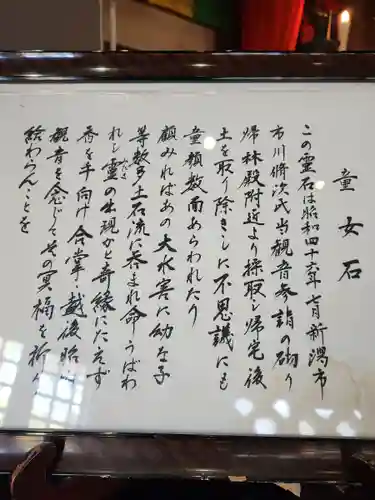 童女石
この霊石は昭和四十六年七月新潟市
市川脩次氏当観音参詣の砌り
帰林殿附近より採取し帰宅後
土を取り除きしに不思議にも
童顔数面あらわれたり
顧みればあの大水害に幼な子
等数多土石流に呑まれ命をうばわ
れし霊の出現かと奇縁にたえず
香を手向け合掌
観音を念じてその冥福を祈り
給わらんことを